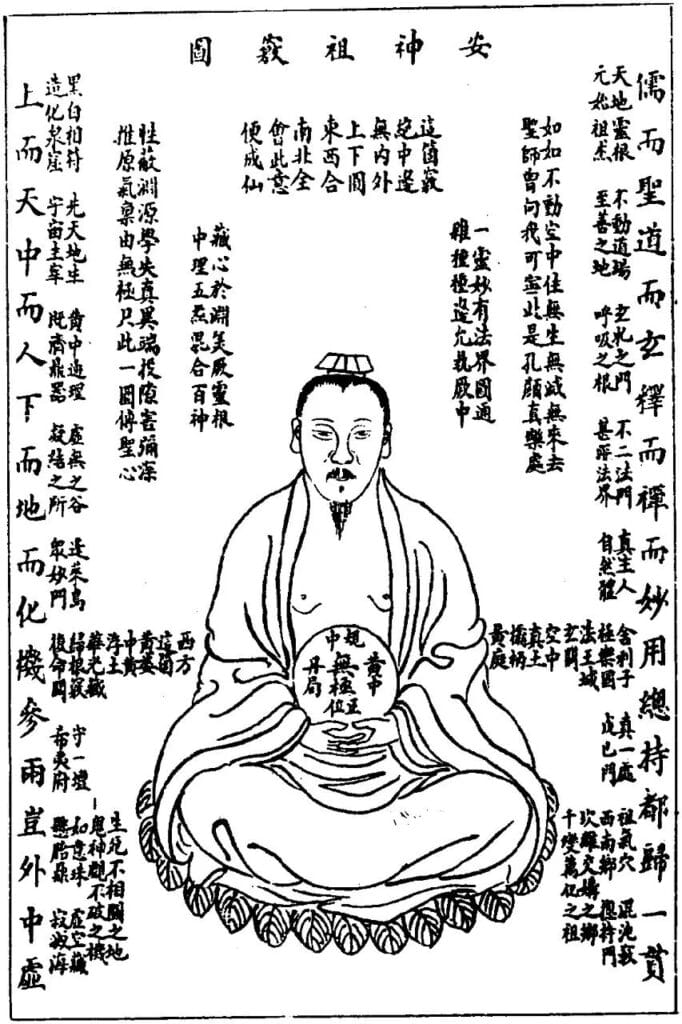 安神祖竅圖
儒而聖道而玄釋而禪而妙用總持都歸一貫
天地靈根 不動道場 玄牝之門 不二法門 真主人 舍利子 真一處 祖氣穴 混沌竅
元始祖炁 至善之地 呼吸之根 甚深法界 自然體 極樂國 戊己門 西南鄉 總持門
法王城 坎離交媾之鄉
玄關 千變萬化之祖
空中
真土
柄
黃庭
如如不動空中住無生無滅無來去
聖師曾問我可寧此是孔顏真樂處
一靈妙有法界圓通
離種種邊允執厥中
這箇竅
絕中邊
無內外
上下圓
東西合
南北全
會此意
便成仙
藏心於淵美厥靈根
中理五炁混合百神
性蔽淵源學失真異端投隙害彌深
推原氣稟由無極只此一圖傳聖心
規中
黃中
無極
正位
丹扃
西方
這箇
黃婆
中黃
淨土
生死不相關之地
鬼神覷不破之機
黑白相符 先天地生 黃中通理 虛無之谷 蓬萊島 華光藏 歸根竅 守一壇 如意珠 虛空藏
造化泉窟 宇宙主宰 既濟鼎器 凝結之所 眾妙門 復命關 希夷府 懸胎鼎 寂滅海
上而天中而人下而地而化機參兩豈外中虛